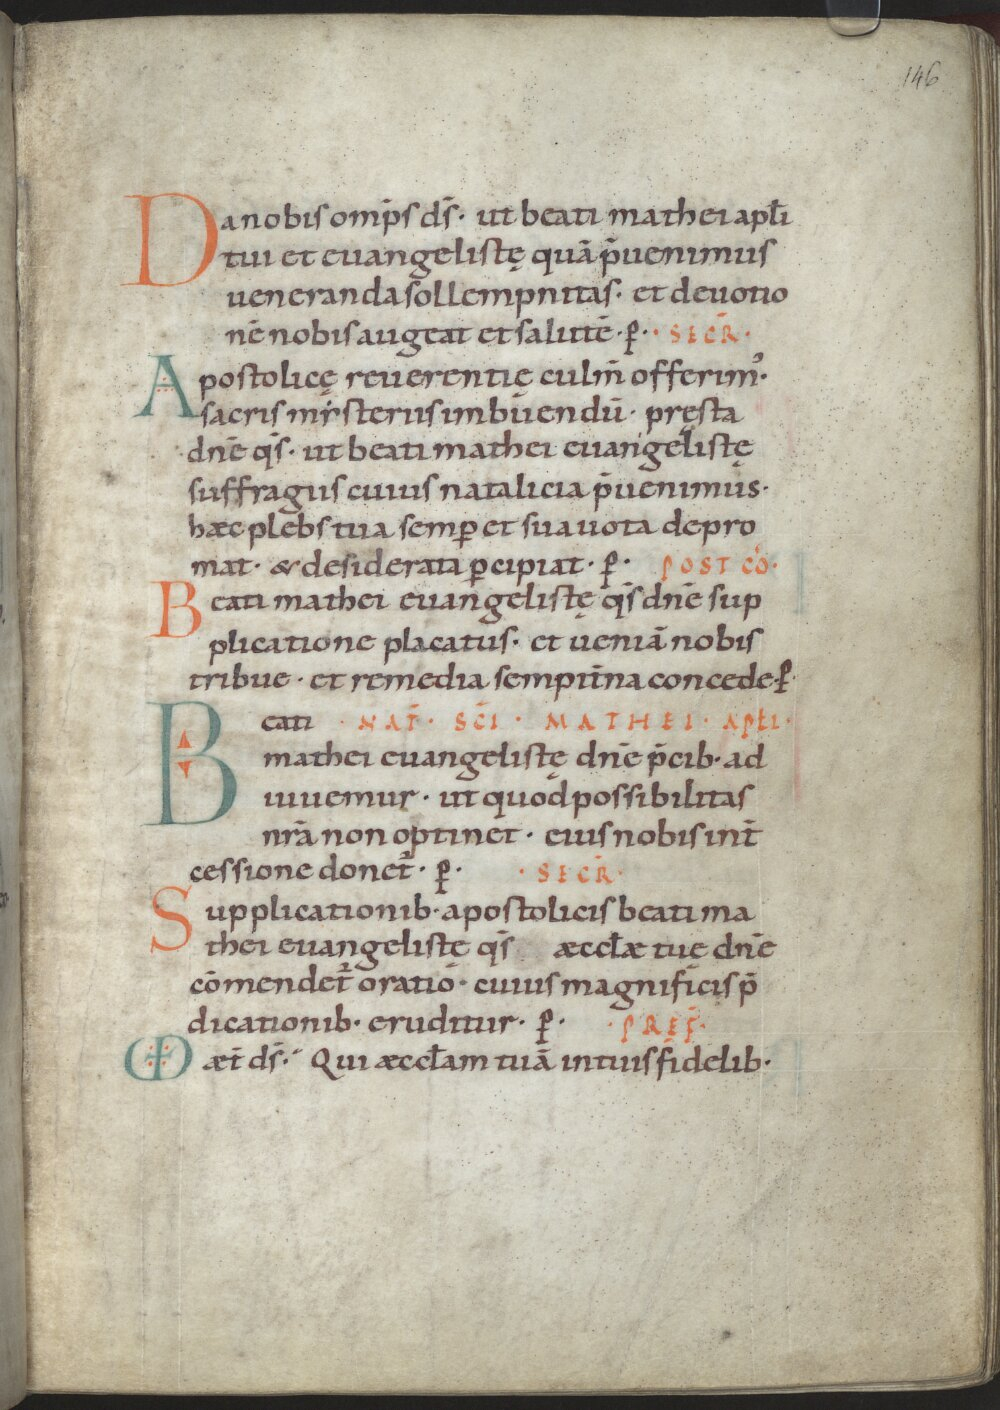 146
Da nobis omp̄s d̄s· ut beati mathei apłi
tui et euangelistę quā p̄uenimus
ueneranda sollempnitas· et deuotio
nē nobis augeat et salutē· ꝑ· · SECR̄·
Apostolicę reuerentię culm̄ offerim᾽·
sacris mẏsteriis imbuendū· pręsta
dn̄e qs̄· ut beati mathei euangelistę
suffragiis cuius natalicia p̄uenimus·
haec plebs tua semꝑ et sua uota depro
mat· & desiderata ꝑcipiat· ꝑ· POST CO᷒·
Beati mathei euangelistę qs̄ dn̄e sup
plicatione placatus· et ueniā nobis
tribue· et remedia sempit̄na concede· ꝑ
Beati · NAT̄· SC̄I · MATHEI· apłi·
mathei euangelistę dn̄e p̄cib· ad
iuuemur· ut quod possibilitas
nr̄a non optinet· eius nobis int̄
cessione donet᷑· ꝑ· · SECR̄·
Supplicationib· apostolicis beati ma
thei euangelistę qs̄ æccłæ tuę dn̄e
cōmendet᷑ oratio· cuius magnificis p̄
dicationib· eruditur· ꝑ· · PREF̄·
VD æt̄ d̄s· Qui æccłam tuā in tuis fidelib·